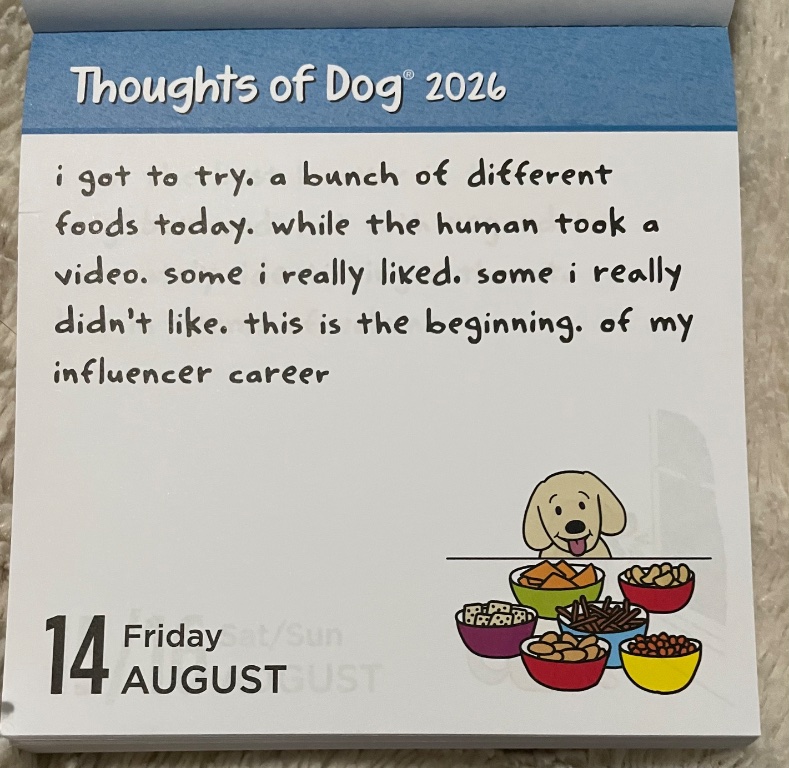 Thoughts of Dog® 2026
i got to try. a bunch of different
foods today. while the human took a
video. some i really liked. some i really
didn't like. this is the beginning. of my
influencer career
14 Friday
AUGUST
Sat/Sun